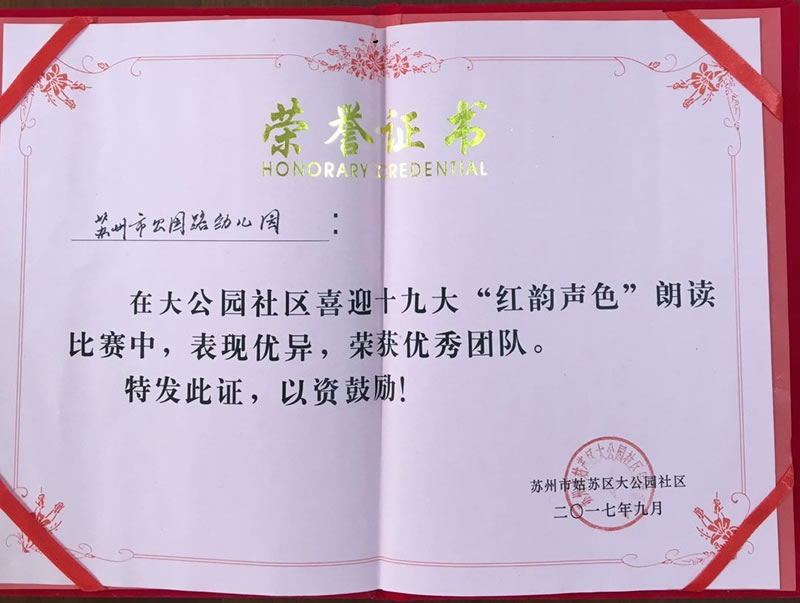 荣誉证书
HONORARY CREDENTIAL
苏州市公园路幼儿园：
在大公园社区喜迎十九大“红韵声色”朗读
比赛中，表现优异，荣获优秀团队。
特发此证，以资鼓励！
苏州市姑苏区大公园社区
二〇一七年九月